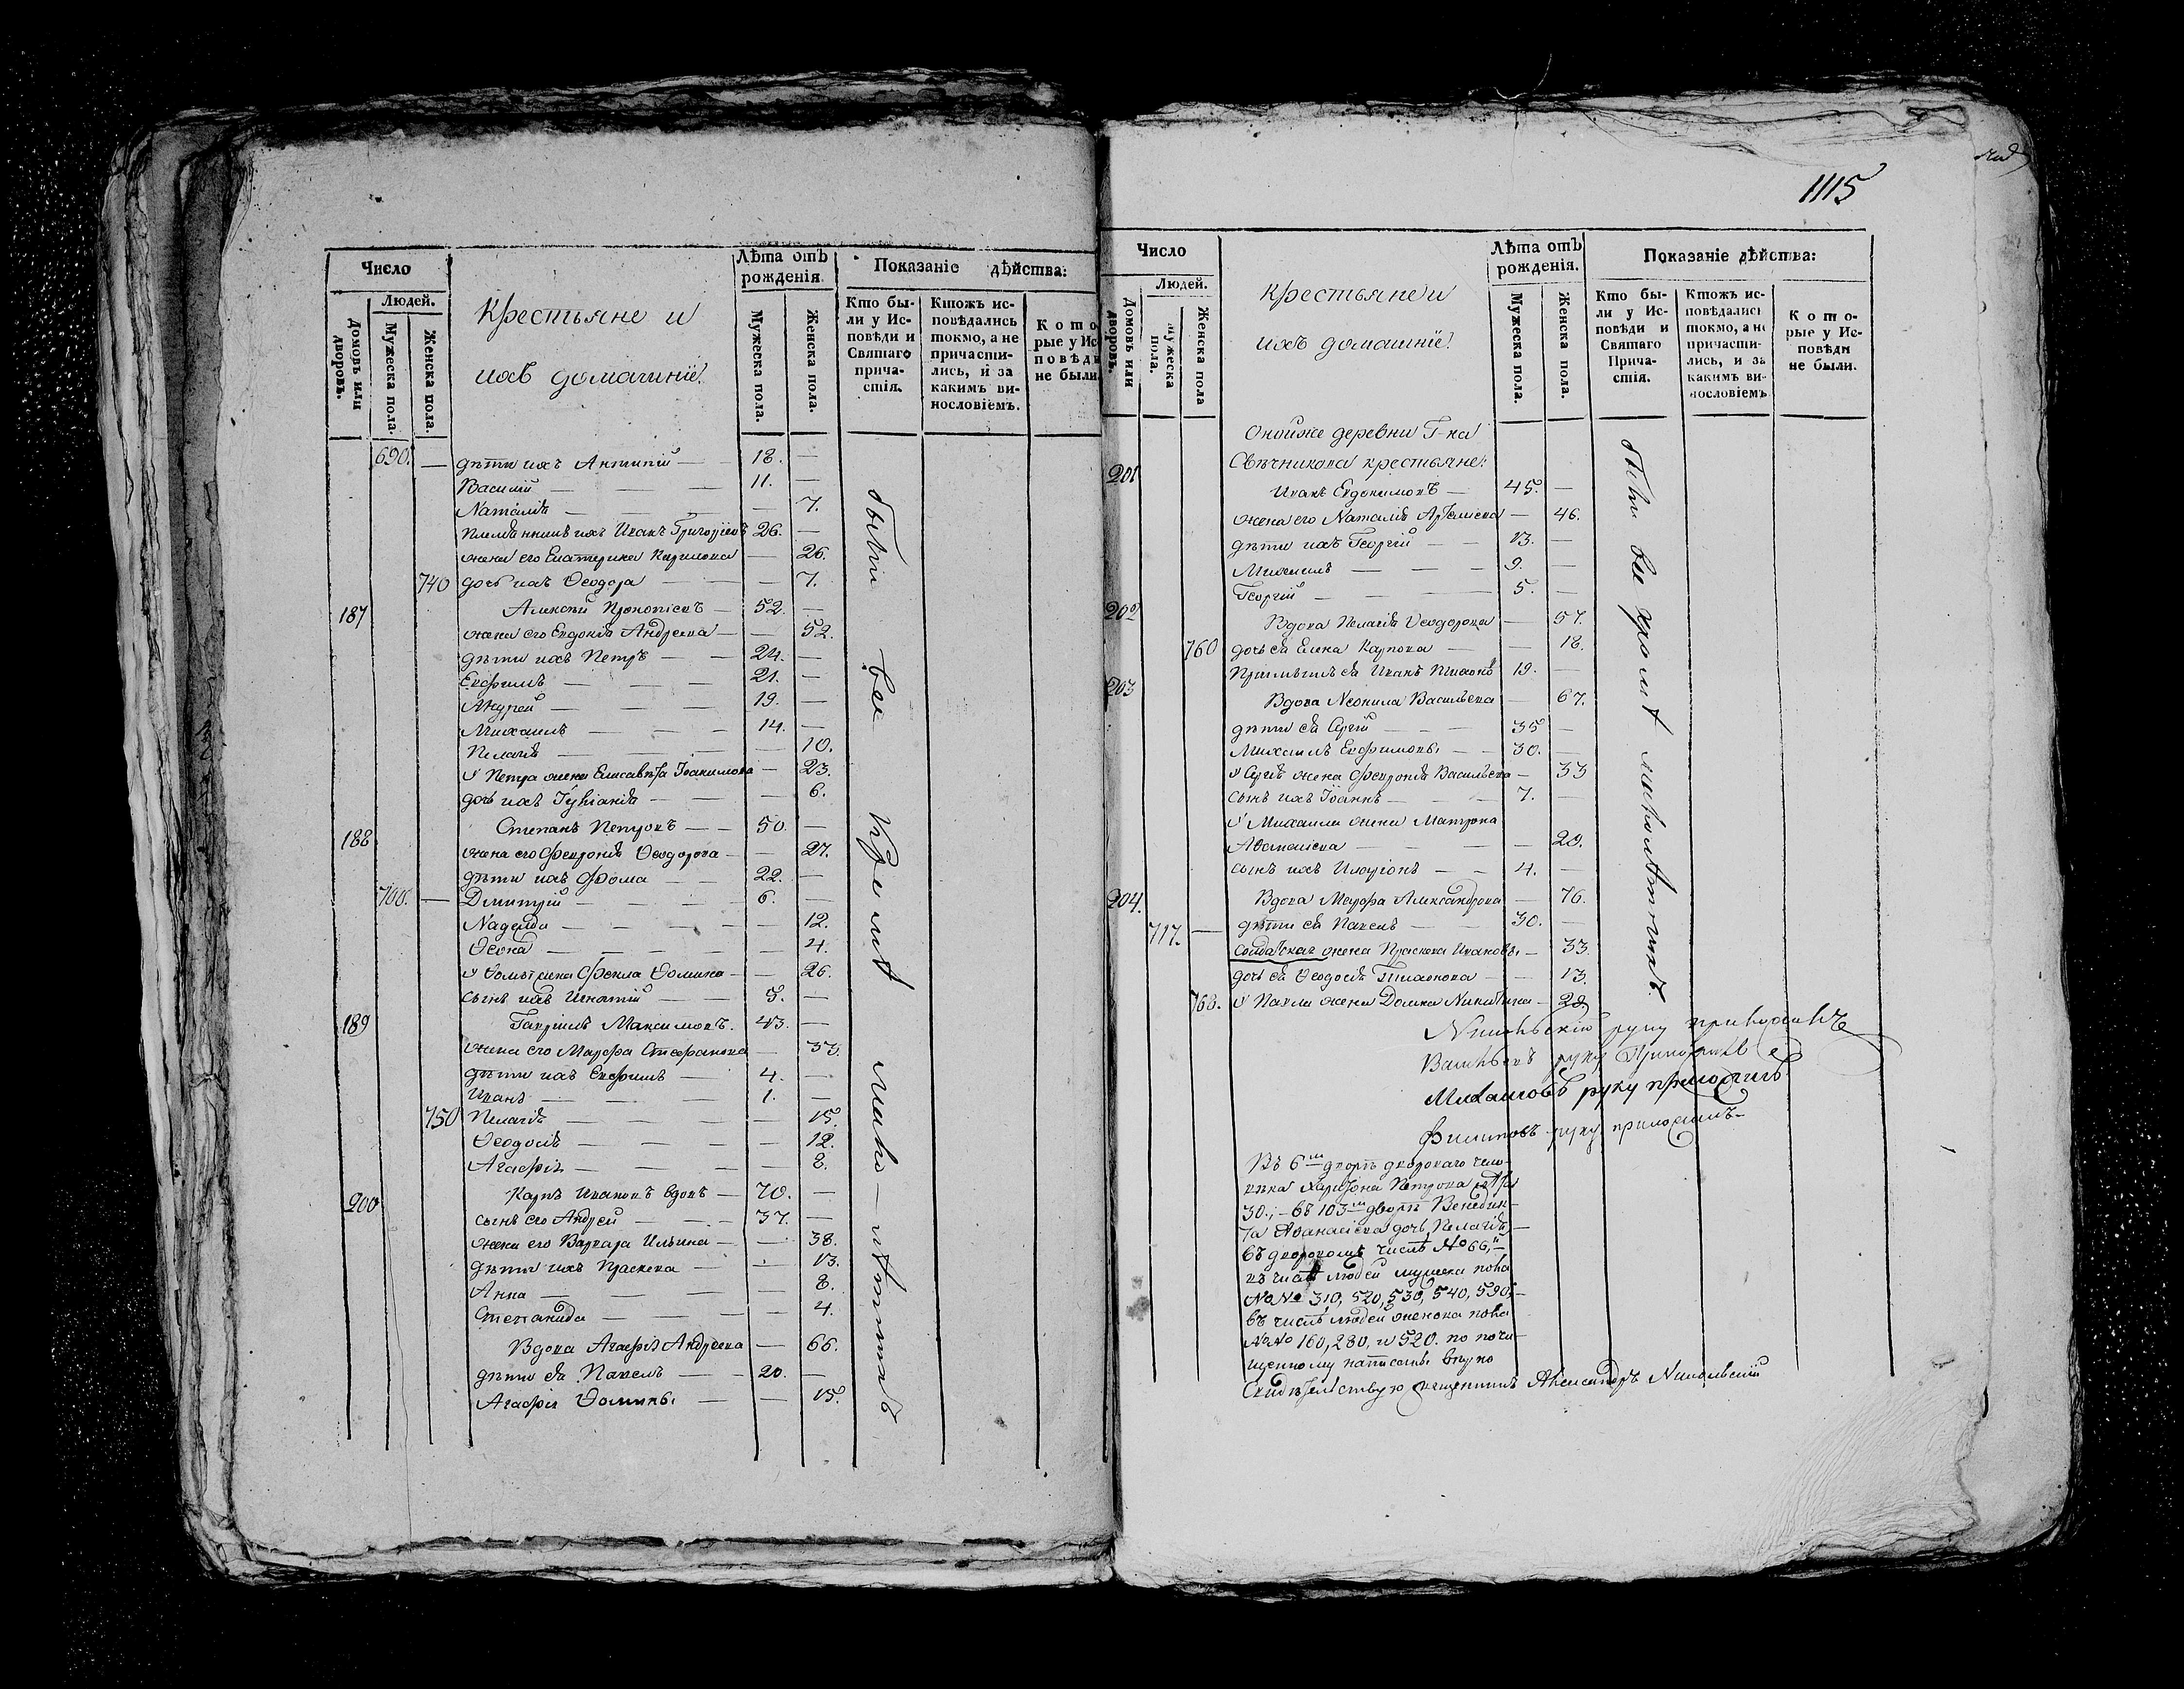 Число
Людей.
Домовъ или дворовъ.
Мужеска пола.
Женска пола.
Крестьяне и
ихъ домашніе.
Лѣта отъ рожденія.
Мужеска пола.
Женска пола.
Показаніе дѣйства:
Кто бы-
ли у Ис-
повѣди и
Святаго
прича-
стія.
Ктожъ ис-
повѣдались
токмо, а не
причасти-
лись, и за
какимъ ви-
нословіемъ.
Кото
рые у Ис
повѣди
не были.
690. — дѣти ихъ Антипій — 18. —
Василій — — — 11. —
Наталія — — — — 7.
Племянникъ ихъ Иванъ Григорьевъ 26. —
жена его Екатерина Карпова — 26.
740 дочь ихъ Ѳеодора — — — 7.
187 Алексѣй Прокопіевъ — 52. —
жена его Евдокія Андреева — — 52.
дѣти ихъ Петръ — — 24. —
Евфимъ — — — 21. —
Андрей — — — 19. —
Михаилъ — — — 14. —
Пелагія — — — — 10.
У Петра жена Елисавета Іоакимова — 23.
дочь ихъ Іуліанія — — — 6.
188 Степанъ Петровъ — — 50. —
жена его Февронія Ѳеодорова — — 27.
дѣти ихъ Фома — — 22. —
700. — Димитрій — — — 6. —
Надежда — — — — 12.
— — — — 4.
У Фомы жена Фекла Фомина — — 26.
сынъ ихъ Игнатій — — 5. —
189 Гавріилъ Максимовъ. 43. —
жена его Марфа Стефанова — 33.
дѣти ихъ Евфимъ — 4. —
Иванъ — — — 1. —
750 Пелагія — — — — 15.
Ѳеодосія — — — — 12.
Агафія — — — — 8.
200 Карпъ Ивановъ вдовъ — 70. —
сынъ его Андрей — — — 37. —
жена его Варвара Ильина — — 38.
дѣти ихъ Праскева — — 13.
Анна — — — — 8.
Степанида — — — — 4.
Вдова Агафія Андреева — 66.
дѣти ея Павелъ — — 20. —
Агафія Фомины — — 15.
были все
1115
Число
Людей.
Домовъ или дворовъ.
Мужеска пола.
Женска пола
Крестьяне и
ихъ домашніе.
Лѣта отъ рожденія.
Мужеска пола.
Женска пола.
Показаніе дѣйства:
Кто бы-
ли у Ис-
повѣди и
Святаго
Прича-
стія.
Ктожъ ис-
повѣдалисі
токмо, а не
причасти-
лись, и за
какимъ ви-
нословіемъ
Кото-
рые у Ис-
повѣди
не были.
Онойже деревни Г-на
Свѣчникова крестьяне:
201 Иванъ Евдокимовъ — 45. —
жена его Наталія Артеміева — 46.
дѣти ихъ Георгій — — 13. —
Михаилъ — — — 9. —
Георгій — — — 5. —
202 Вдова Пелагія Ѳеодорова — 57.
760 дочь ея Елена Карпова — — 18.
Пріимышъ ея Иванъ 19. —
203 Вдова Неонила Васильева — 67.
дѣти ея Сергій — — — 35 —
Михаилъ Евфимовы — — 30. —
У Сергія жена Февронія Васильева — 33
сынъ ихъ Іоаннъ — — — 7. —
У Михаила жена Матрона
Аѳанасіева — — — — 28.
сынъ ихъ Иларіонъ — — 4. —
204. Вдова Марфа Александрова — 76.
717. — дѣти ея Павелъ — — 30. —
Солдатская жена Праскева Иванова — 33.
дочь ея Ѳеодосія — — 13.
768. У Павла жена Домна Никитина — 28
были все
Никольскій руку приложилъ
Васильевъ руку приложилъ
Михайловъ руку приложилъ
Филиповъ руку приложилъ
Въ 6-мъ дворѣ двороваго чело-
вѣка Харитона Петрова лѣта
30.; — въ 103-мъ дворѣ Венедик-
та Аѳанасіева дочь Пелагія —
въ дворовомъ числѣ № 66, —
въ числѣ людей мужеска пола
№№ 310, 520, 530, 540, 590, —
въ числѣ людей женска пола
№№ 160, 280, и 520. по почи-
щенному написаны вѣрно
Свидѣтельствую священникъ Александръ Никольскій